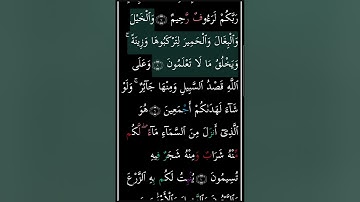 رَبَّكُمْ لَرَءُوفٌ رَّحِيمٌ ۝ وَٱلْخَيْلَ
وَٱلْبِغَالَ وَٱلْحَمِيرَ لِتَرْكَبُوهَا وَزِينَةً ۚ
وَيَخْلُقُ مَا لَا تَعْلَمُونَ ۝ وَعَلَى
ٱللَّهِ قَصْدُ ٱلسَّبِيلِ وَمِنْهَا جَآئِرٌ ۚ وَلَوْ
شَآءَ لَهَدَىٰكُمْ أَجْمَعِينَ ۝ هُوَ
ٱلَّذِىٓ أَنزَلَ مِنَ ٱلسَّمَآءِ مَآءً ۖ لَّكُم
مِّنْهُ شَرَابٌ وَمِنْهُ شَجَرٌ فِيهِ
تُسِيمُونَ ۝ يُنۢبِتُ لَكُم بِهِ ٱلزَّرْعَ